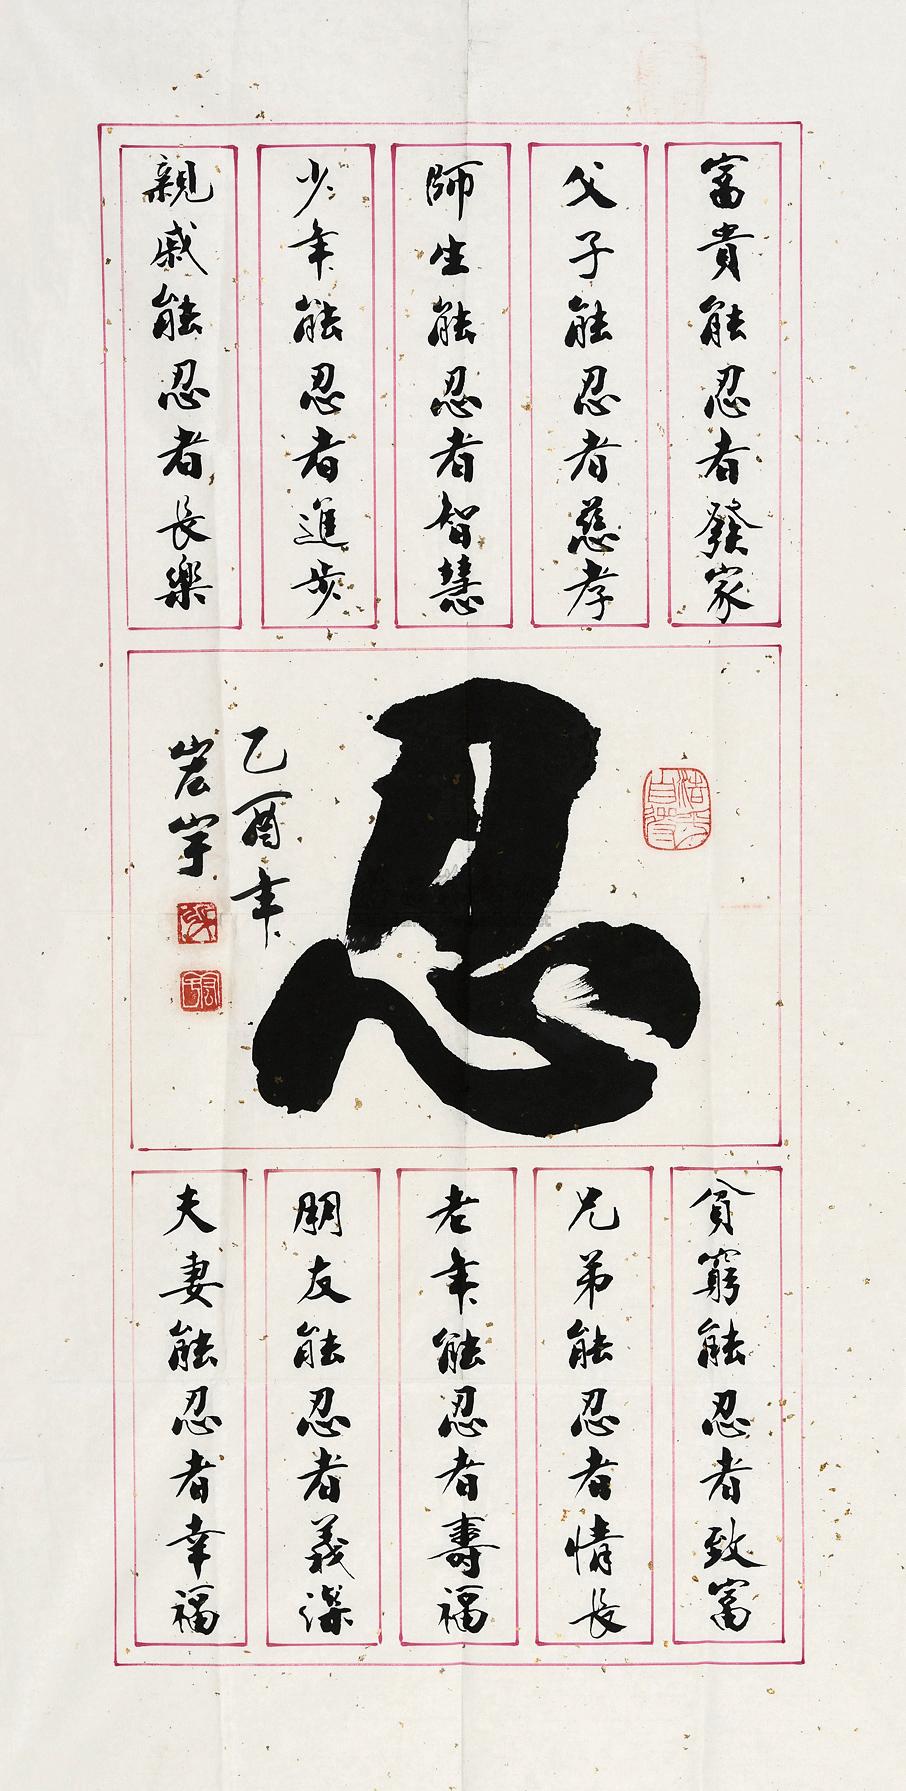 富貴能忍者發家
父子能忍者慈孝
師生能忍者智慧
少年能忍者進步
親戚能忍者長樂
忍
乙酉年
宏宇
貧窮能忍者致富
兄弟能忍者情長
老年能忍者壽福
朋友能忍者義深
夫妻能忍者幸福